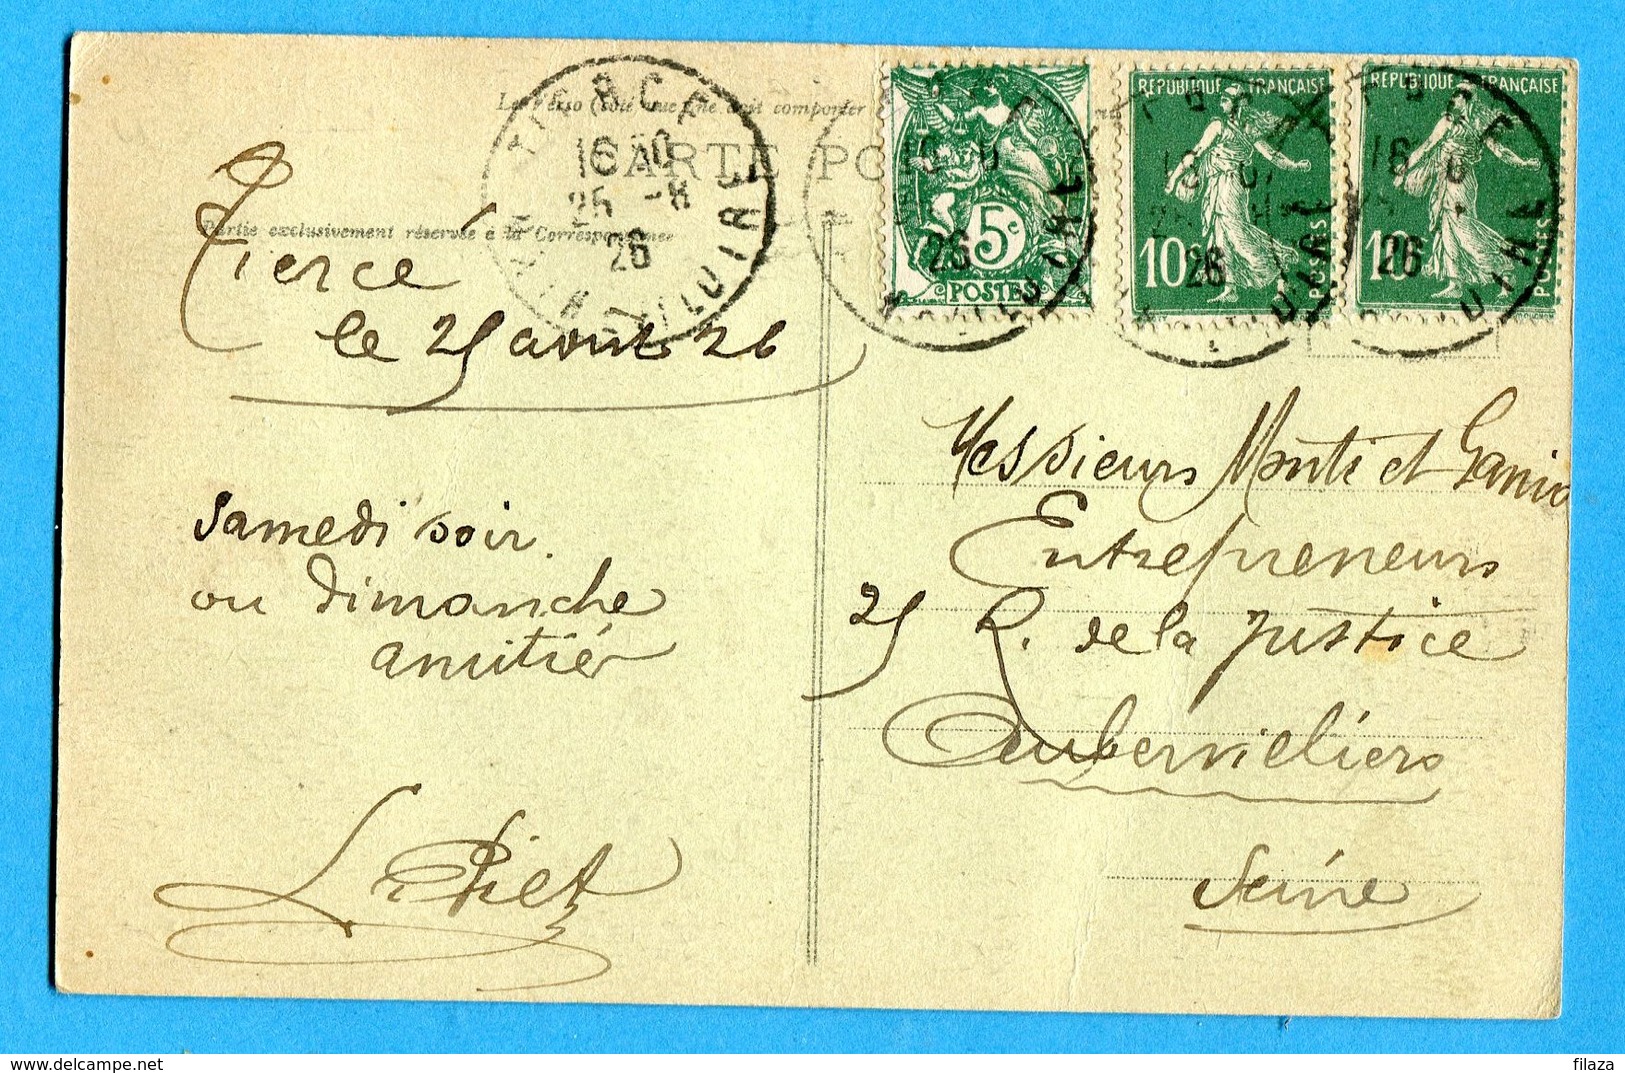 Le Verso (côté vue) ne doit comporter
CARTE PO
Partie exclusivement réservée à la Correspondance
TIERCE
16 30
25 -8
26
MAINE ET LOIRE
5c
POSTES
26
RÉPUBLIQUE FRANÇAISE
10
POSTES
26
RÉPUBLIQUE FRANÇAISE
10
POSTES
26
Tiercé
le 25 aout 26
Samedi soir.
ou dimanche
amitiés
L. Piet
Messieurs Monti et
Entrepreneurs
25 R. de la Justice
Aubervilliers
Seine
filaza